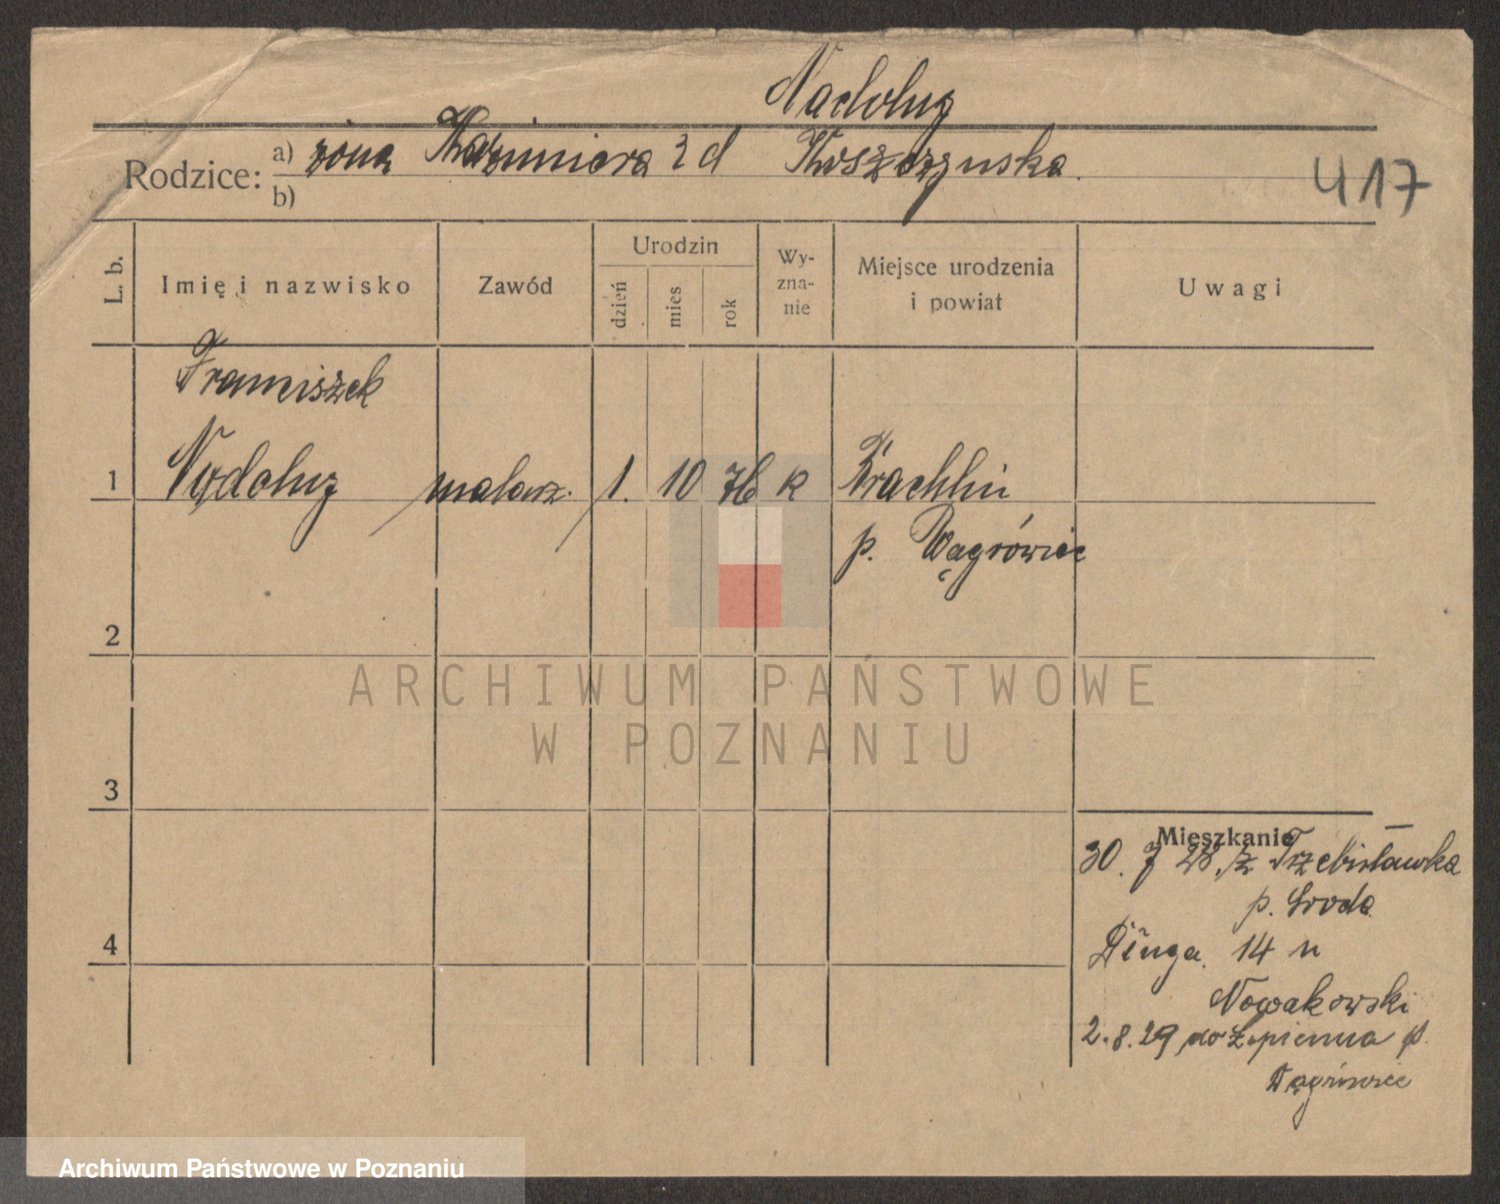 Nadolny
Rodzice: a) żona Kazimiera z d Koszczynska.
b)
417
L. b. Imię i nazwisko Zawód Urodzin dzień mies rok Wyznanie Miejsce urodzenia i powiat Uwagi
Franciszek
1 Nadolny malarz. 1. 10 76 k Brachlin
p. Wągrówiec
2
ARCHIWUM PAŃSTWOWE
W POZNANIU
3
Mieszkanie
30. 7 28. z Trzebisławka
p. Sroda
4 Długa. 14 u
Nowakowski
2.8.29 do Łopienna p.
Wągrówiec
Archiwum Państwowe w Poznaniu